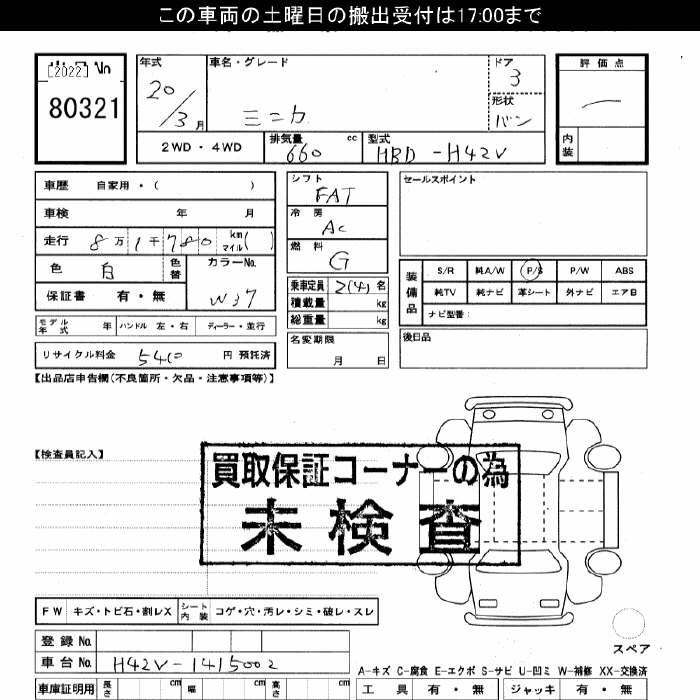 この車両の土曜日の搬出受付は17:00まで
[2022] No
80321
年式
20/3月
車名・グレード
ミニカ
ドア
3
形状
バン
評価点
内装
2WD・4WD
排気量 660 cc
型式 HBD-H42V
車歴 自家用・( )
車検 年 月
走行 8万1千780 km マイル( )
色 白 色替
カラーNo. W37
保証書 有・無
シフト FAT
冷房 AC
燃料 G
乗車定員 2(4)名
積載量 kg
総重量 kg
セールスポイント
装備品
S/R 純A/W P/S P/W ABS
純TV 純ナビ 革シート 外ナビ エアB
ナビ型番:
モデル年式 年 ハンドル 左・右 ディーラー・並行
名変期限
月 日
後日品
リサイクル料金 5410 円 預託済
【出品店申告欄(不良箇所・欠品・注意事項等)】
【検査員記入】
買取保証コーナーの為
未検査
FW キズ・トビ石・割レX シート内装 コゲ・穴・汚レ・シミ・破レ・スレ
スペア
登録No.
車台No. H42V-1415002
A-キズ C-腐食 E-エクボ S-サビ U-凹ミ W-補修 XX-交換済
車庫証明用 長さ cm 幅 cm 高さ cm
工具 有・無 ジャッキ 有・無